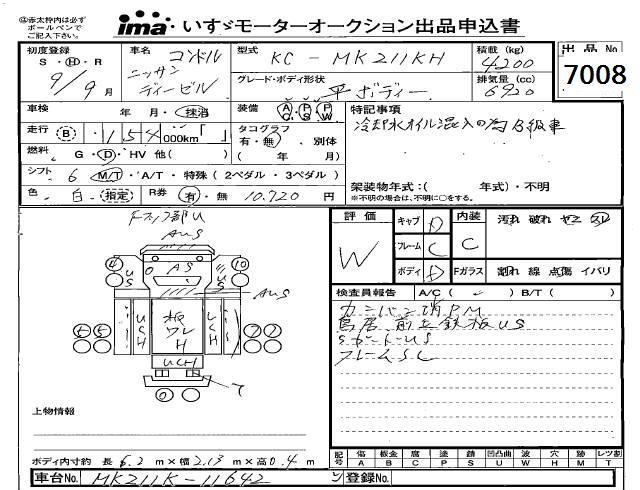 ㊟赤太枠内は必ず
ボールペンで
ご記入下さい。
ima いすゞモーターオークション出品申込書
初度登録
S・H・R
9/9月
車名 コンドル
ニッサン
ディーゼル
型式 KC-MK211KH
グレード・ボディ形状
平ボディー
積載 (kg)
4200
排気量 (cc)
6920
出品No
7008
車検 年・月・抹消
走行 B・154,000km「 」
燃料 G・D・HV 他( )
シフト 6 M/T・A/T・特殊(2ペダル・3ペダル)
色 白・指定 R券 有・無 10,720 円
装備 A/C P/S P/W
タコグラフ
有・無・別体
( 年 月)
特記事項
冷却水オイル混入の為B級車
架装物年式:( 年式)・不明
※不明の場合は、不明に○をする。
評価
W
キャブ D
フレーム C
ボディ D
内装 C
Fガラス
汚れ 破れ ヤニ スレ
割れ 線 点傷 イバリ
検査員報告 A/C( ) B/T( )
カンバン消PM
鳥居、前立鉄板US
SガードUS
フレームSC
AUS
④ O AS ⑩
US US
AUS
USH 板ワレH UCH
UCH
⑥ ⑤ ⑦ ⑦
O O
上物情報
ボディ内寸約 長 6.2 m×幅 2.13 m×高 0.4 m
記号 傷 板金 腐 塗 錆 凹凸曲 波 穴 跡 レンズ割
A B C P S U W H M T
車台No. MK211K-11642
登録No.